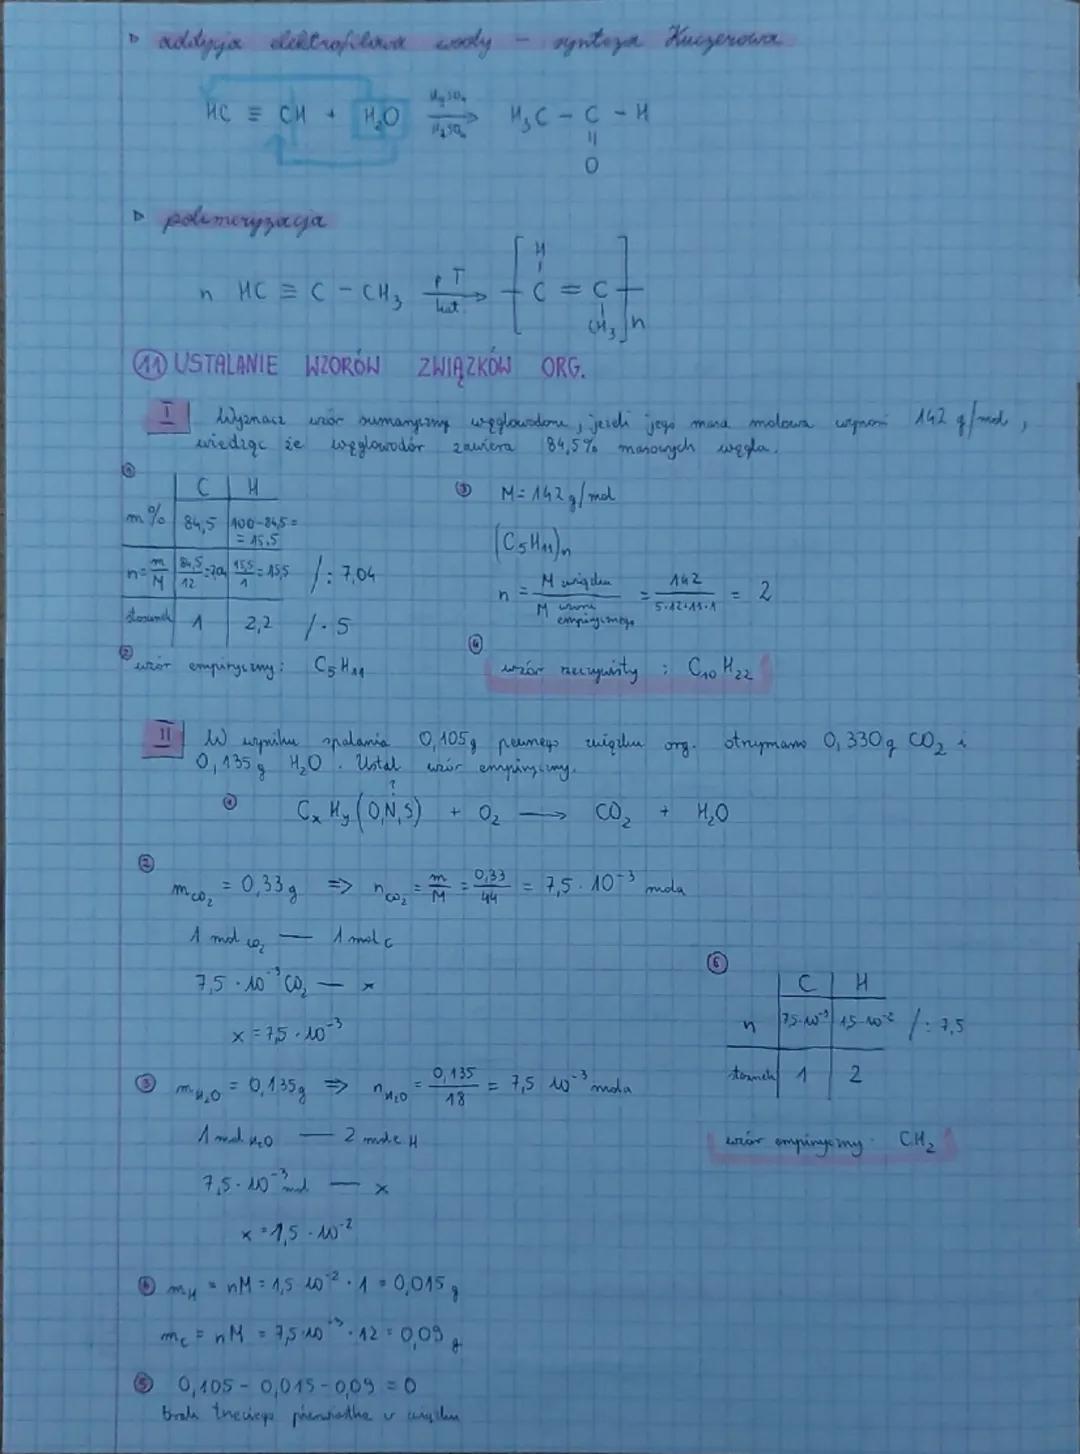 ▷ addycja elektrofilowa wody – synteza Kuczerowa
HC ≡ CH + H₂O →(HgSO₄ / H₂SO₄) H₃C – C – H
||
O
▷ polimeryzacja
n HC ≡ C – CH₃ →(p T / kat.) [ C = C ]n
H
CH₃
⑪ USTALANIE WZORÓW ZWIĄZKÓW ORG.
I Wyznacz wzór sumaryczny węglowodoru, jeżeli jego masa molowa wynosi 142 g/mol,
wiedząc że węglowodór zawiera 84,5% masowych węgla.
①
C | H
m% | 84,5 | 100-84,5 =
= 15,5
n = m/M | 84,5/12 = 7,04 | 15,5/1 = 15,5 /: 7,04
stosunek | 1 | 2,2 /· 5
② wzór empiryczny: C₅H₁₁
③ M = 142 g/mol
(C₅H₁₁)n
n = M związku / M wzoru empirycznego = 142 / 5·12+11·1 = 2
④
wzór rzeczywisty : C₁₀H₂₂
II W wyniku spalania 0,105g pewnego związku org. otrzymano 0,330g CO₂ i
0,135g H₂O. Ustal wzór empiryczny.
?
① CₓHᵧ(O,N,S) + O₂ → CO₂ + H₂O
②
m CO₂ = 0,33g => n CO₂ = m/M = 0,33/44 = 7,5 · 10⁻³ mola
1 mol CO₂ — 1 mol C
7,5 · 10⁻³ CO₂ — x
x = 7,5 · 10⁻³
③ m H₂O = 0,135g => n H₂O = 0,135/18 = 7,5 10⁻³ mola
1 mol H₂O — 2 mole H
7,5 · 10⁻³ mol — x
x = 1,5 · 10⁻²
④ m H = nM = 1,5 10⁻² · 1 = 0,015 g
m C = nM = 7,5·10⁻³ · 12 = 0,09 g
⑤ 0,105 - 0,015 - 0,09 = 0
brak trzeciego pierwiastka w związku
⑥
C | H
n | 7,5·10⁻³ | 1,5·10⁻² /: 7,5
stosunek | 1 | 2
wzór empiryczny: CH₂